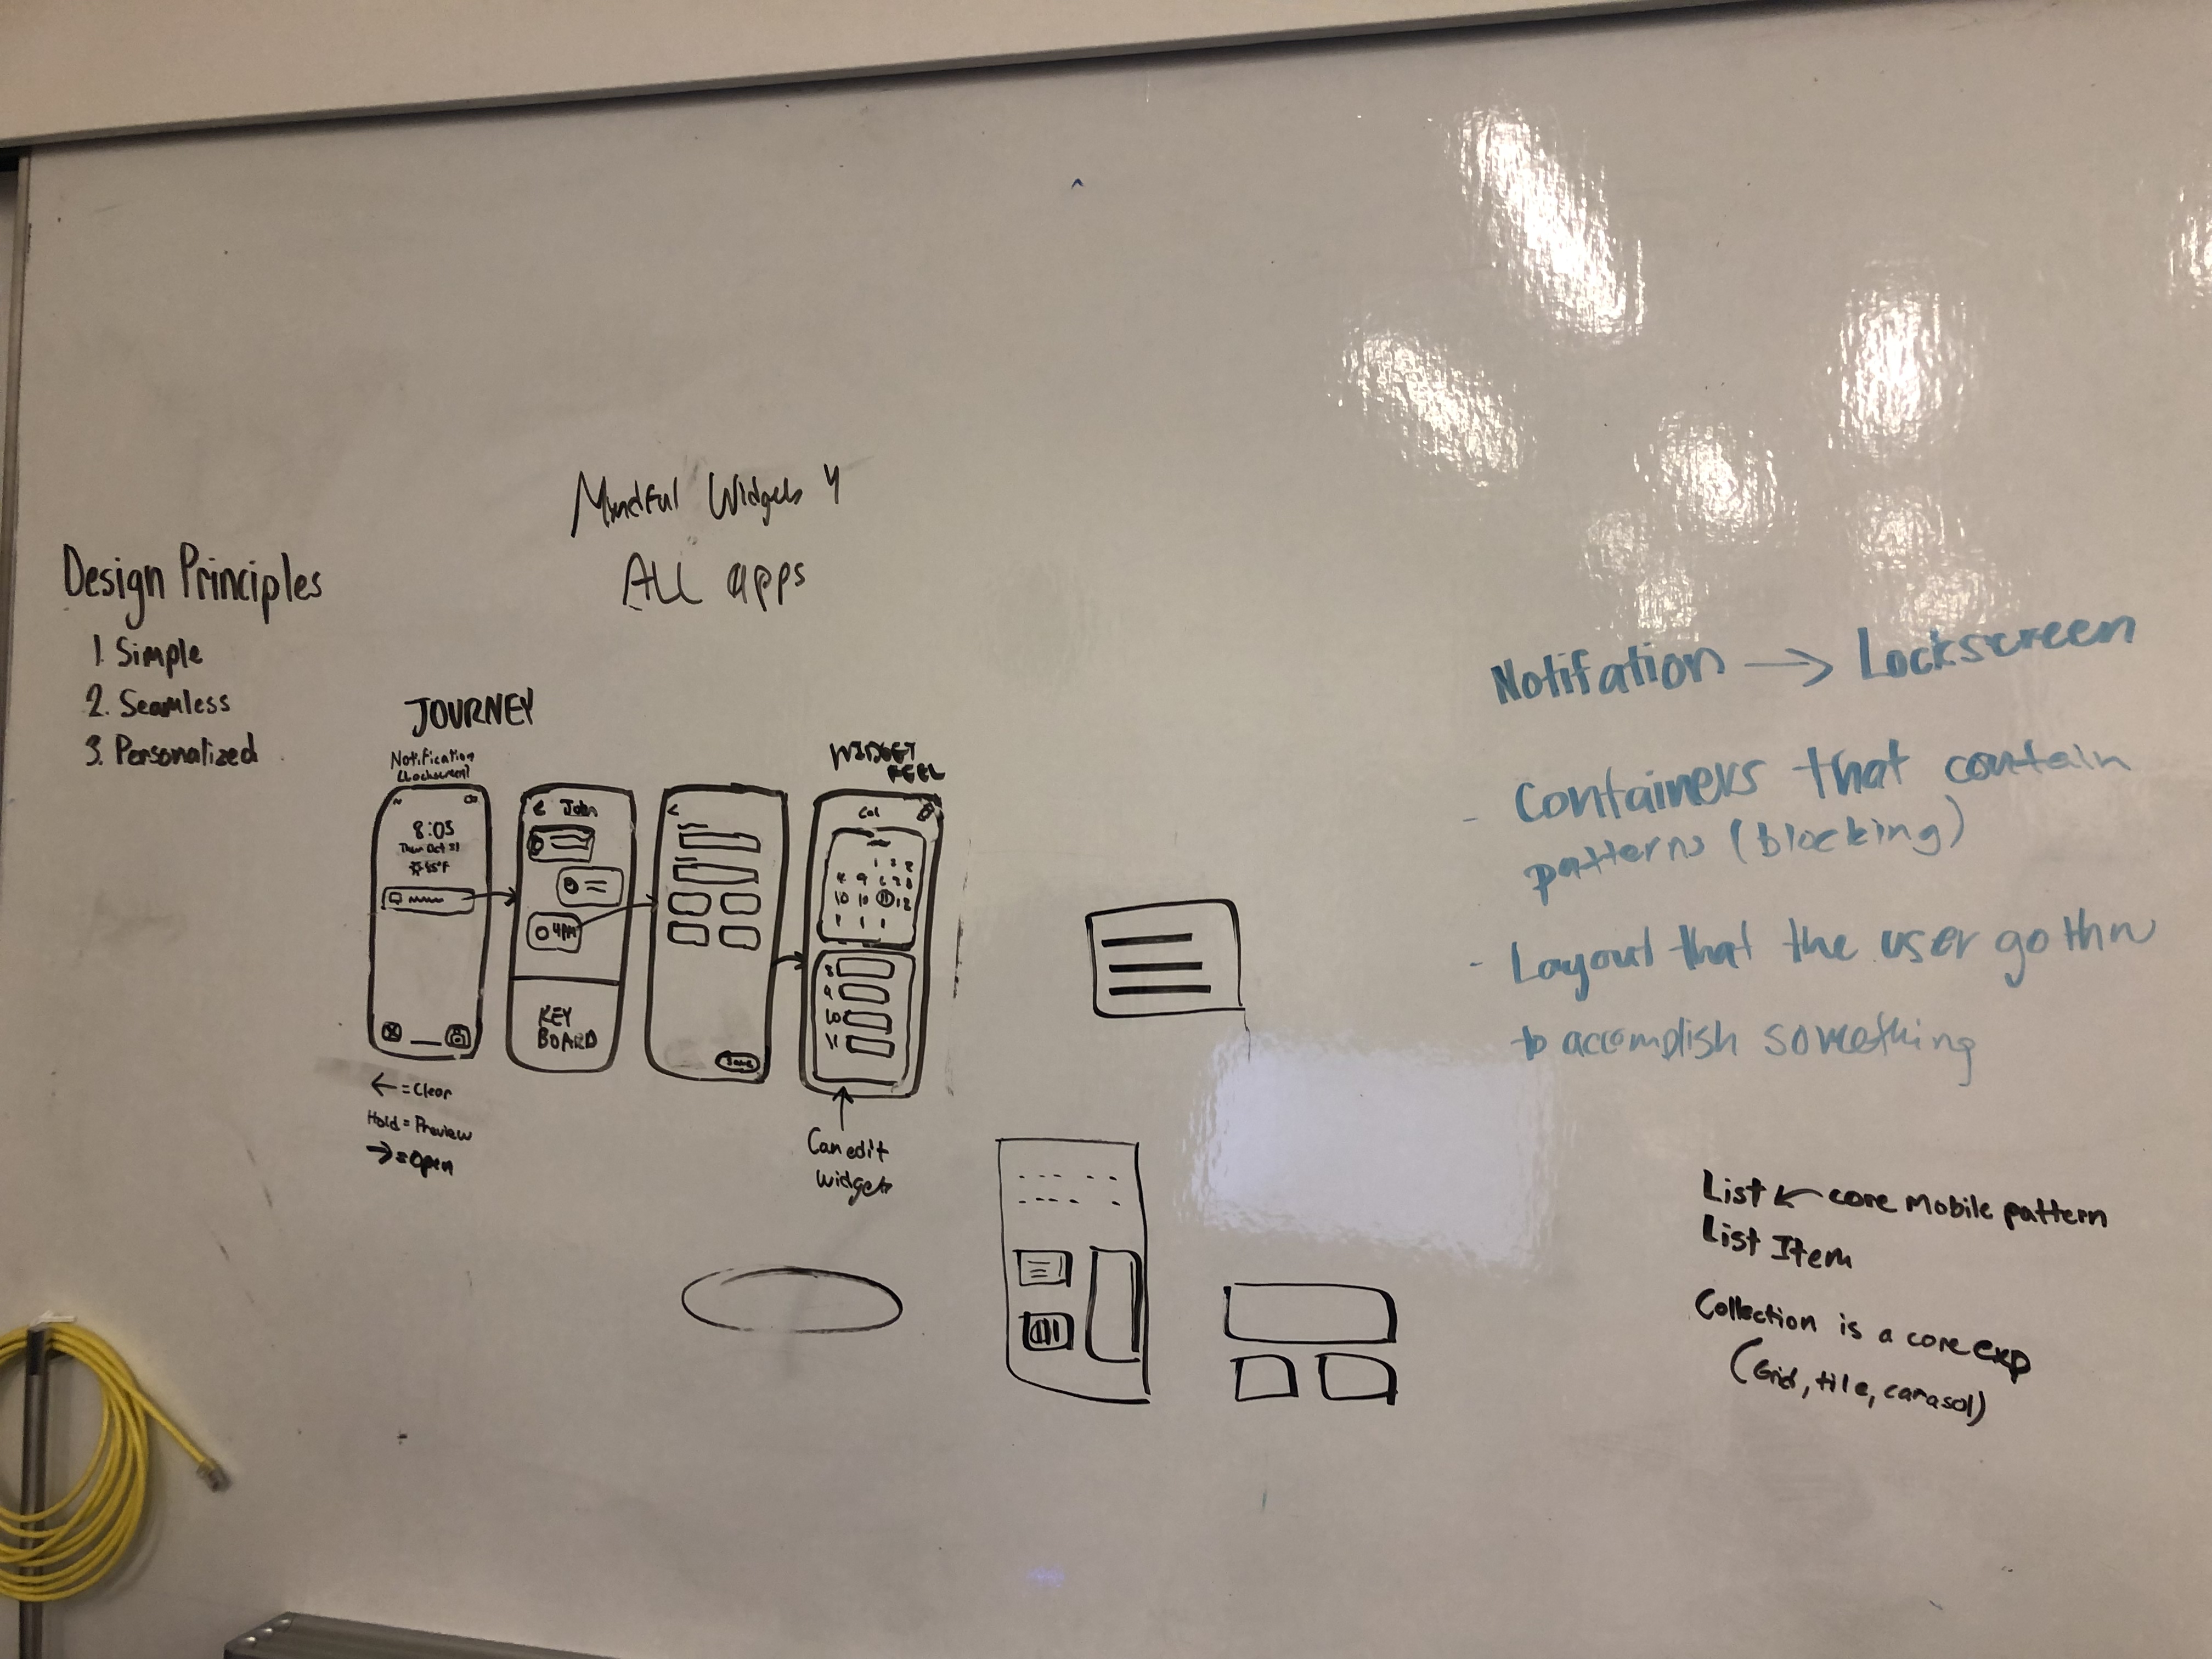 Mindful Widgets 4
ALL apps
Design Principles
1. Simple
2. Seamless
3. Personalized
JOURNEY
Notification
(Lockscreen)
8:05
Thur Oct 31
45°F
← = Clear
Hold = Preview
→ = Open
< John
4PM
KEY
BOARD
<
Save
WIDGET
FEEL
Cal
8
9
10
11
Can edit
widgets
Notifation → Lockscreen
- Containers that contain
patterns (blocking)
- Layout that the user go thru
to accomplish something
List ← core mobile pattern
List Item
Collection is a core exp
(Grid, tile, carasol)